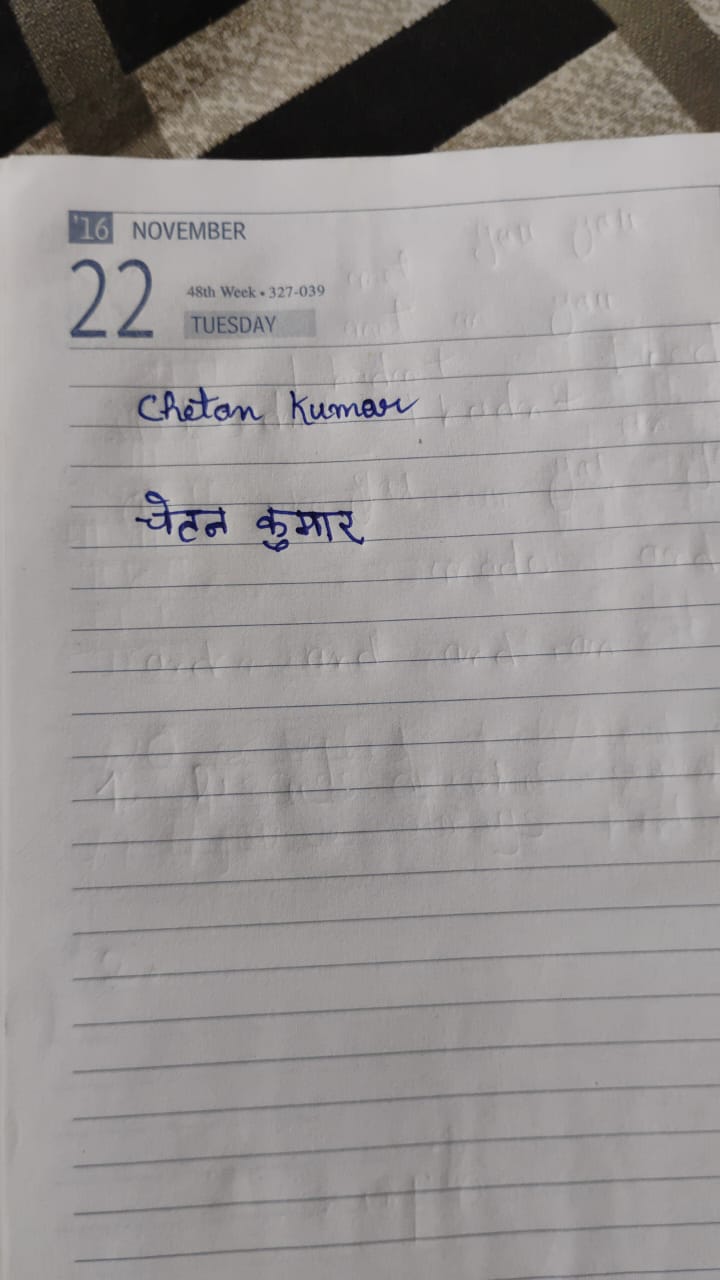 '16 NOVEMBER
22
48th Week • 327-039
TUESDAY
Chetan Kumar
चेतन कुमार